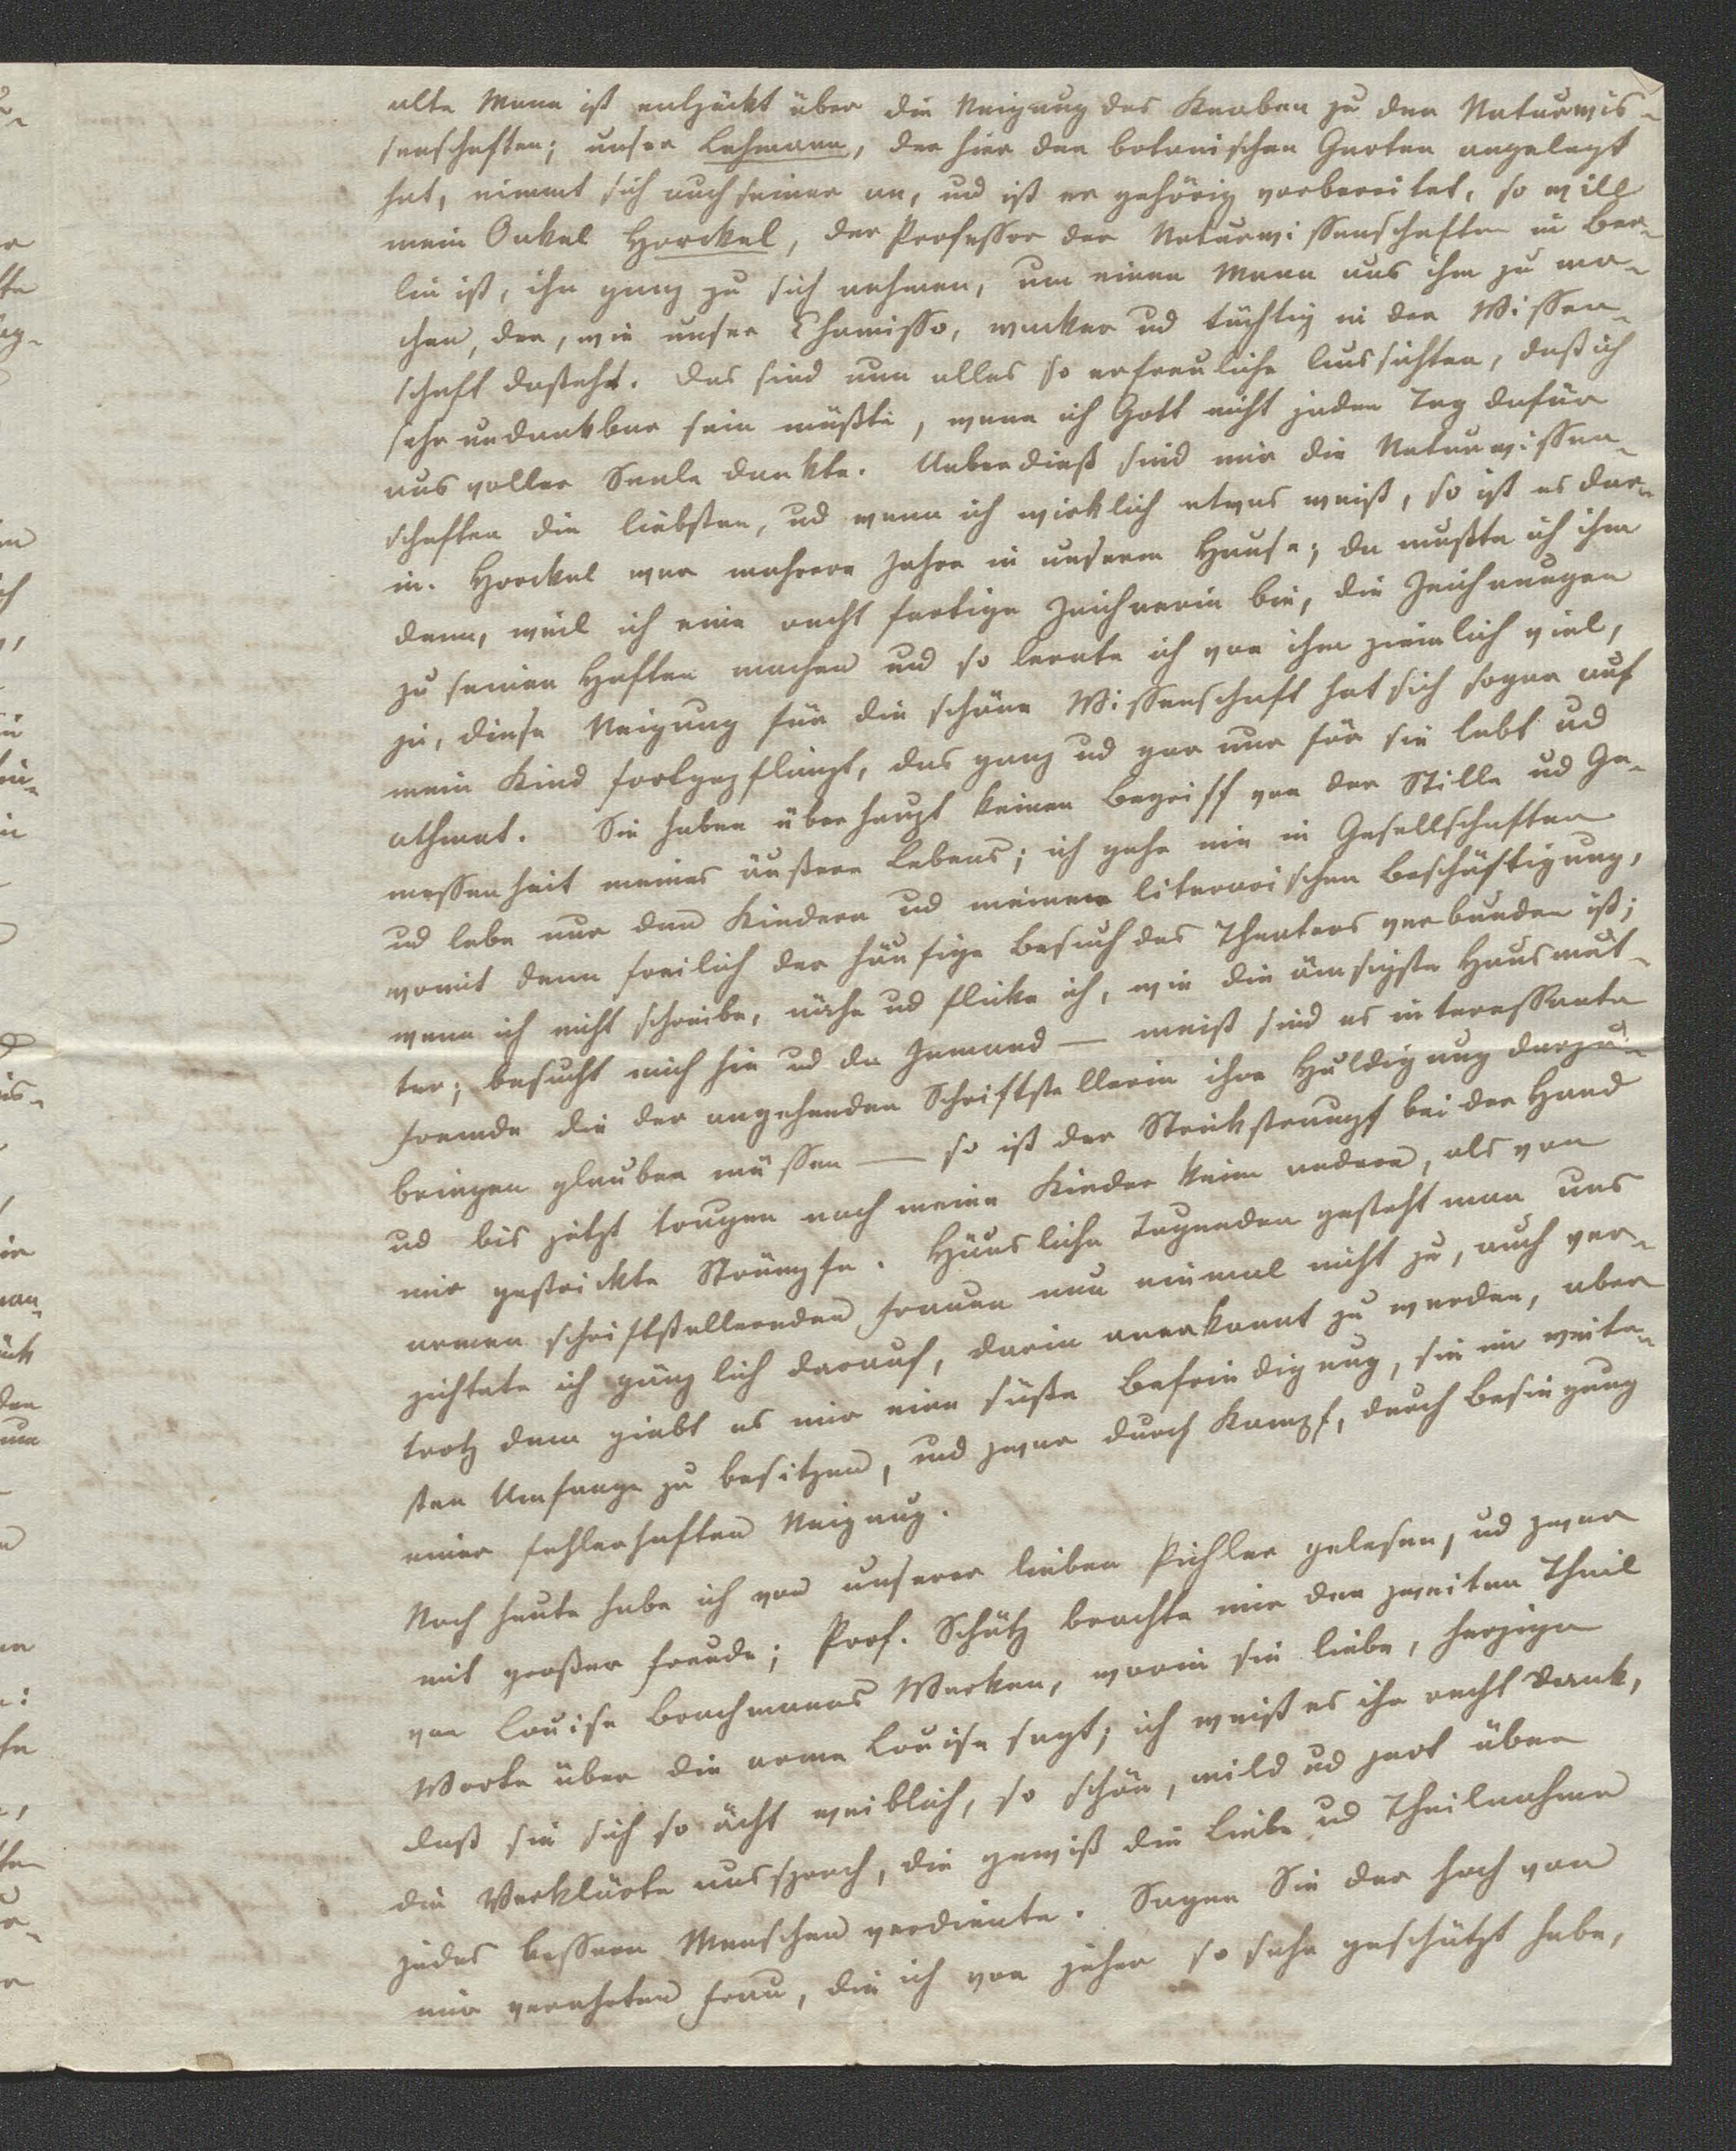 alte Mann ist entzückt über die Neigung des Knaben zu den Naturwis-
senschaften; unser Lehmann, der hier den botanischen Garten angelegt
hat, nimmt sich auch seiner an, und ist er gehörig vorbereitet, so will
mein Onkel Horckel, der Professor der Naturwissenschaften in Ber-
lin ist, ihn ganz zu sich nehmen, um einen Mann aus ihm zu ma-
chen, der, wie unser Chamisso, wacker und tüchtig in der Wissen-
schaft dasteht. Das sind nun alles so erfreuliche Aussichten, daß ich
sehr undankbar sein müßte, wenn ich Gott nicht jeden Tag dafür
aus voller Seele dankte. Ueberdieß sind mir die Naturwissen-
schaften die liebsten, und wenn ich wirklich etwas weiß, so ist es dar-
in. Horckel war mehrere Jahre in unserem Hause; da mußte ich ihm
denn, weil ich eine recht fertige Zeichnerin bin, die Zeichnungen
zu seinen Heften machen und so lernte ich von ihm ziemlich viel,
ja, diese Neigung für die schöne Wissenschaft hat sich sogar auf
mein Kind fortgepflanzt, das ganz und gar nur für sie lebt und
athmet. Sie haben überhaupt keinen Begriff von der Stille und Ge-
messenheit meines äußern Lebens; ich gehe nie in Gesellschaften
und lebe nur den Kindern und meiner literarischen Beschäftigung,
womit denn freilich der häufige Besuch des Theaters verbunden ist;
wenn ich nicht schreibe, nähe und flicke ich, wie die ämsigste Hausmut-
ter; besucht mich hie und da Jemand — meist sind es interessante
Fremde die der angehenden Schriftstellerin ihre Huldigung darzu-
bringen glauben müssen — so ist der Strickstrumpf bei der Hand
und bis jetzt trugen noch meine Kinder keine andern, als von
mir gestrickte Strümpfe. Häusliche Tugenden gesteht man uns
armen schriftstellernden Frauen nun einmal nicht zu, auch ver-
zichtete ich gänzlich darauf, darin anerkannt zu werden, aber
trotz dem giebt es mir eine süße Befriedigung, sie im weite-
sten Umfange zu besitzen, und zwar durch Kampf, durch Besiegung
einer fehlerhaften Neigung.
Noch heute habe ich von unserer lieben Pichler gelesen, und zwar
mit großer Freude; Prof. Schütz brachte mir den zweiten Theil
von Louise Brachmanns Werken, worin sie liebe, herzige
Worte über die arme Louise sagt; ich weiß es ihr recht Dank,
daß sie sich so ächt weiblich, so schön, mild und zart über
die Verklärte aussprach, die gewiß die Liebe und Theilnahme
jedes bessern Menschen verdiente. Sagen Sie der hoch von
mir verehrten Frau, die ich von jeher so sehr geschätzt habe,